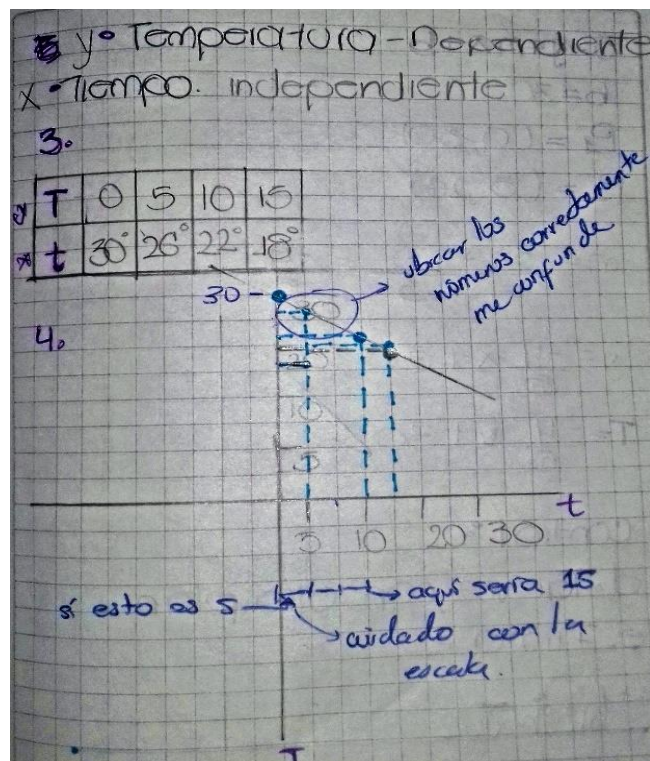 y• Temperatura - Dependiente
x • Tiempo. independiente
3.
y T 0 5 10 15
x t 30° 26° 22° 18°
ubicar los
números correctamente
me confunde
30
30
4.
10
5
t
5 10 20 30
si esto es 5
aquí sería 15
cuidado con la
escala.
T